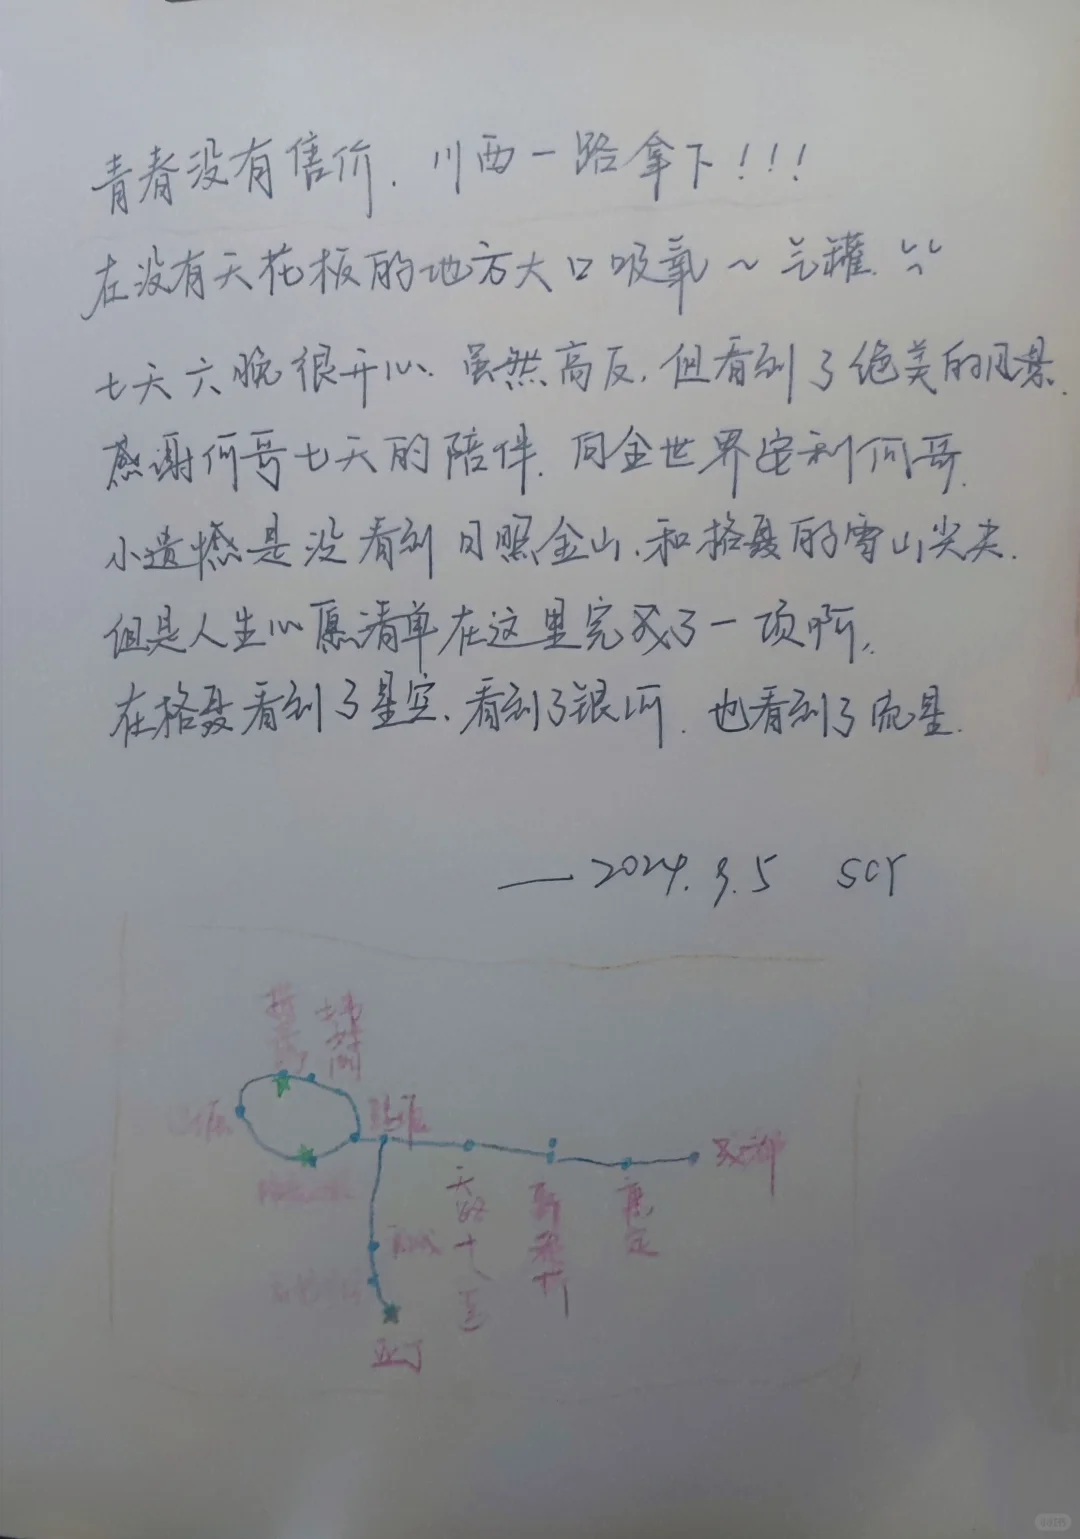 青春没有售价.川西一路拿下!!!
在没有天花板的地方大口吸氧~气罐.
七天六晚很开心.虽然高反,但看到了绝美的风景.
感谢何哥七天的陪伴.向全世界安利何哥.
小遗憾是没看到日照金山,和格聂的雪山尖尖.
但是人生心愿清单在这里完成了一项啊,
在格聂看到了星空,看到了银河.也看到了流星.
——2024.9.5 SCY
理塘
成都
天路十八弯
新都桥
康定
亚丁